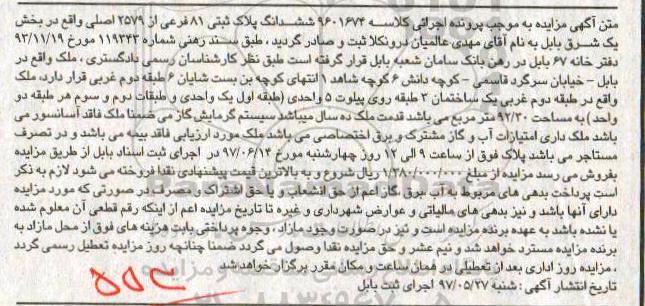 متن آگهی مزایده به موجب پرونده اجرائی کلاسه ۹۶۰۱۶۷۴ ششدانگ پلاک ثبتی ۸۱ فرعی از ۲۵۷۹ اصلی واقع در بخش
یک شرق بابل به نام آقای مهدی عالمیان درونکلا ثبت و صادر گردید، طبق سند رهنی شماره ۱۱۹۳۴۳ مورخ ۹۳/۱۱/۱۹
دفتر خانه ۶۷ بابل در رهن بانک سامان شعبه بابل قرار گرفته است طبق نظر کارشناسان رسمی دادگستری، ملک واقع در
بابل - خیابان سرگرد قاسمی - کوچه دانش ۶ کوچه شاهد ۱ انتهای کوچه بن بست شایان ۶ طبقه دوم غربی قرار دارد، ملک
واقع در طبقه دوم غربی یک ساختمان ۳ طبقه روی پیلوت ۵ واحدی (طبقه اول یک واحدی و طبقات دوم و سوم هر طبقه دو
واحد) به مساحت ۹۲/۳۰ متر مربع می باشد قدمت ملک ده سال میباشد سیستم گرمایش گاز می ضمنا ملک فاقد آسانسور می
باشد ملک داری امتیازات آب و گاز مشترک و برق اختصاصی می باشد ملک مورد ارزیابی فاقد بیمه می باشد و در تصرف
مستاجر می باشد پلاک فوق از ساعت ۹ الی ۱۲ روز چهارشنبه مورخ ۹۷/۰۶/۱۴ در اجرای ثبت اسناد بابل از طریق مزایده
بفروش می رسد مزایده از مبلغ ۱/۳۸۰/۰۰۰/۰۰۰ ریال شروع و به بالاترین قیمت پیشنهادی نقدا فروخته می شود لازم به ذکر
است پرداخت بدهی های مربوط به آب، برق، گاز اعم از حق انشعاب و یا حق اشتراک و مصرف در صورتی که مورد مزایده
دارای آنها باشد و نیز بدهی های مالیاتی و عوارض شهرداری و غیره تا تاریخ مزایده اعم از اینکه رقم قطعی آن معلوم شده
یا نشده باشد به عهده برنده مزایده است و نیز در صورت وجود مازاد، وجوه پرداختی بابت هزینه های فوق از محل مازاد به
برنده مزایده مسترد خواهد شد و نیم عشر و حق مزایده نقدا وصول می گردد ضمنا چنانچه روز مزایده تعطیل رسمی گردد
، مزایده روز اداری بعد از تعطیلی در همان ساعت و مکان مقرر برگزار خواهد شد
تاریخ انتشار آگهی: شنبه ۹۷/۰۵/۲۷ اجرای ثبت بابل